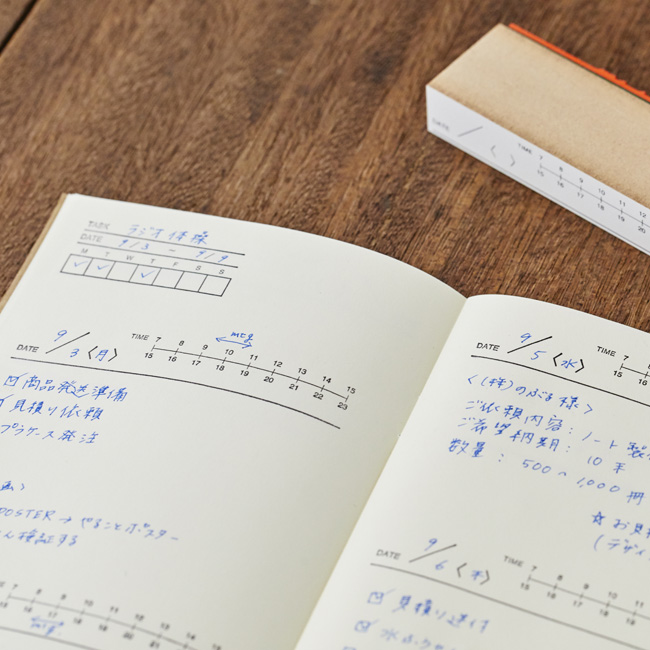 TASK ラジオ体操
DATE 9/3 ~ 9/9
M T W T F S S
DATE 9/3〈月〉 TIME 7 8 9 10 11 12 13 14 15
15 16 17 18 19 20 21 22 23
mtg
商品発送準備
見積り依頼
プラケース発注
POSTER→やることポスター
検証する
7 8 9 10 11 12 13
15 16 17 18 19 20 21
mtg.
DATE 9/5〈水〉 TIME 7 8
15 16
〈(株)のぶる様〉
ご依頼内容:ノート製
ご希望納期:10月
数量:500~1,000冊
☆お見
(デザイ
DATE 9/6〈木〉 TIME 7 8 9 10
15 16 17 18
見積り送付
DATE / 〈 〉 TIME 7 8 9 10 11 12
15 16 17 18 19 20